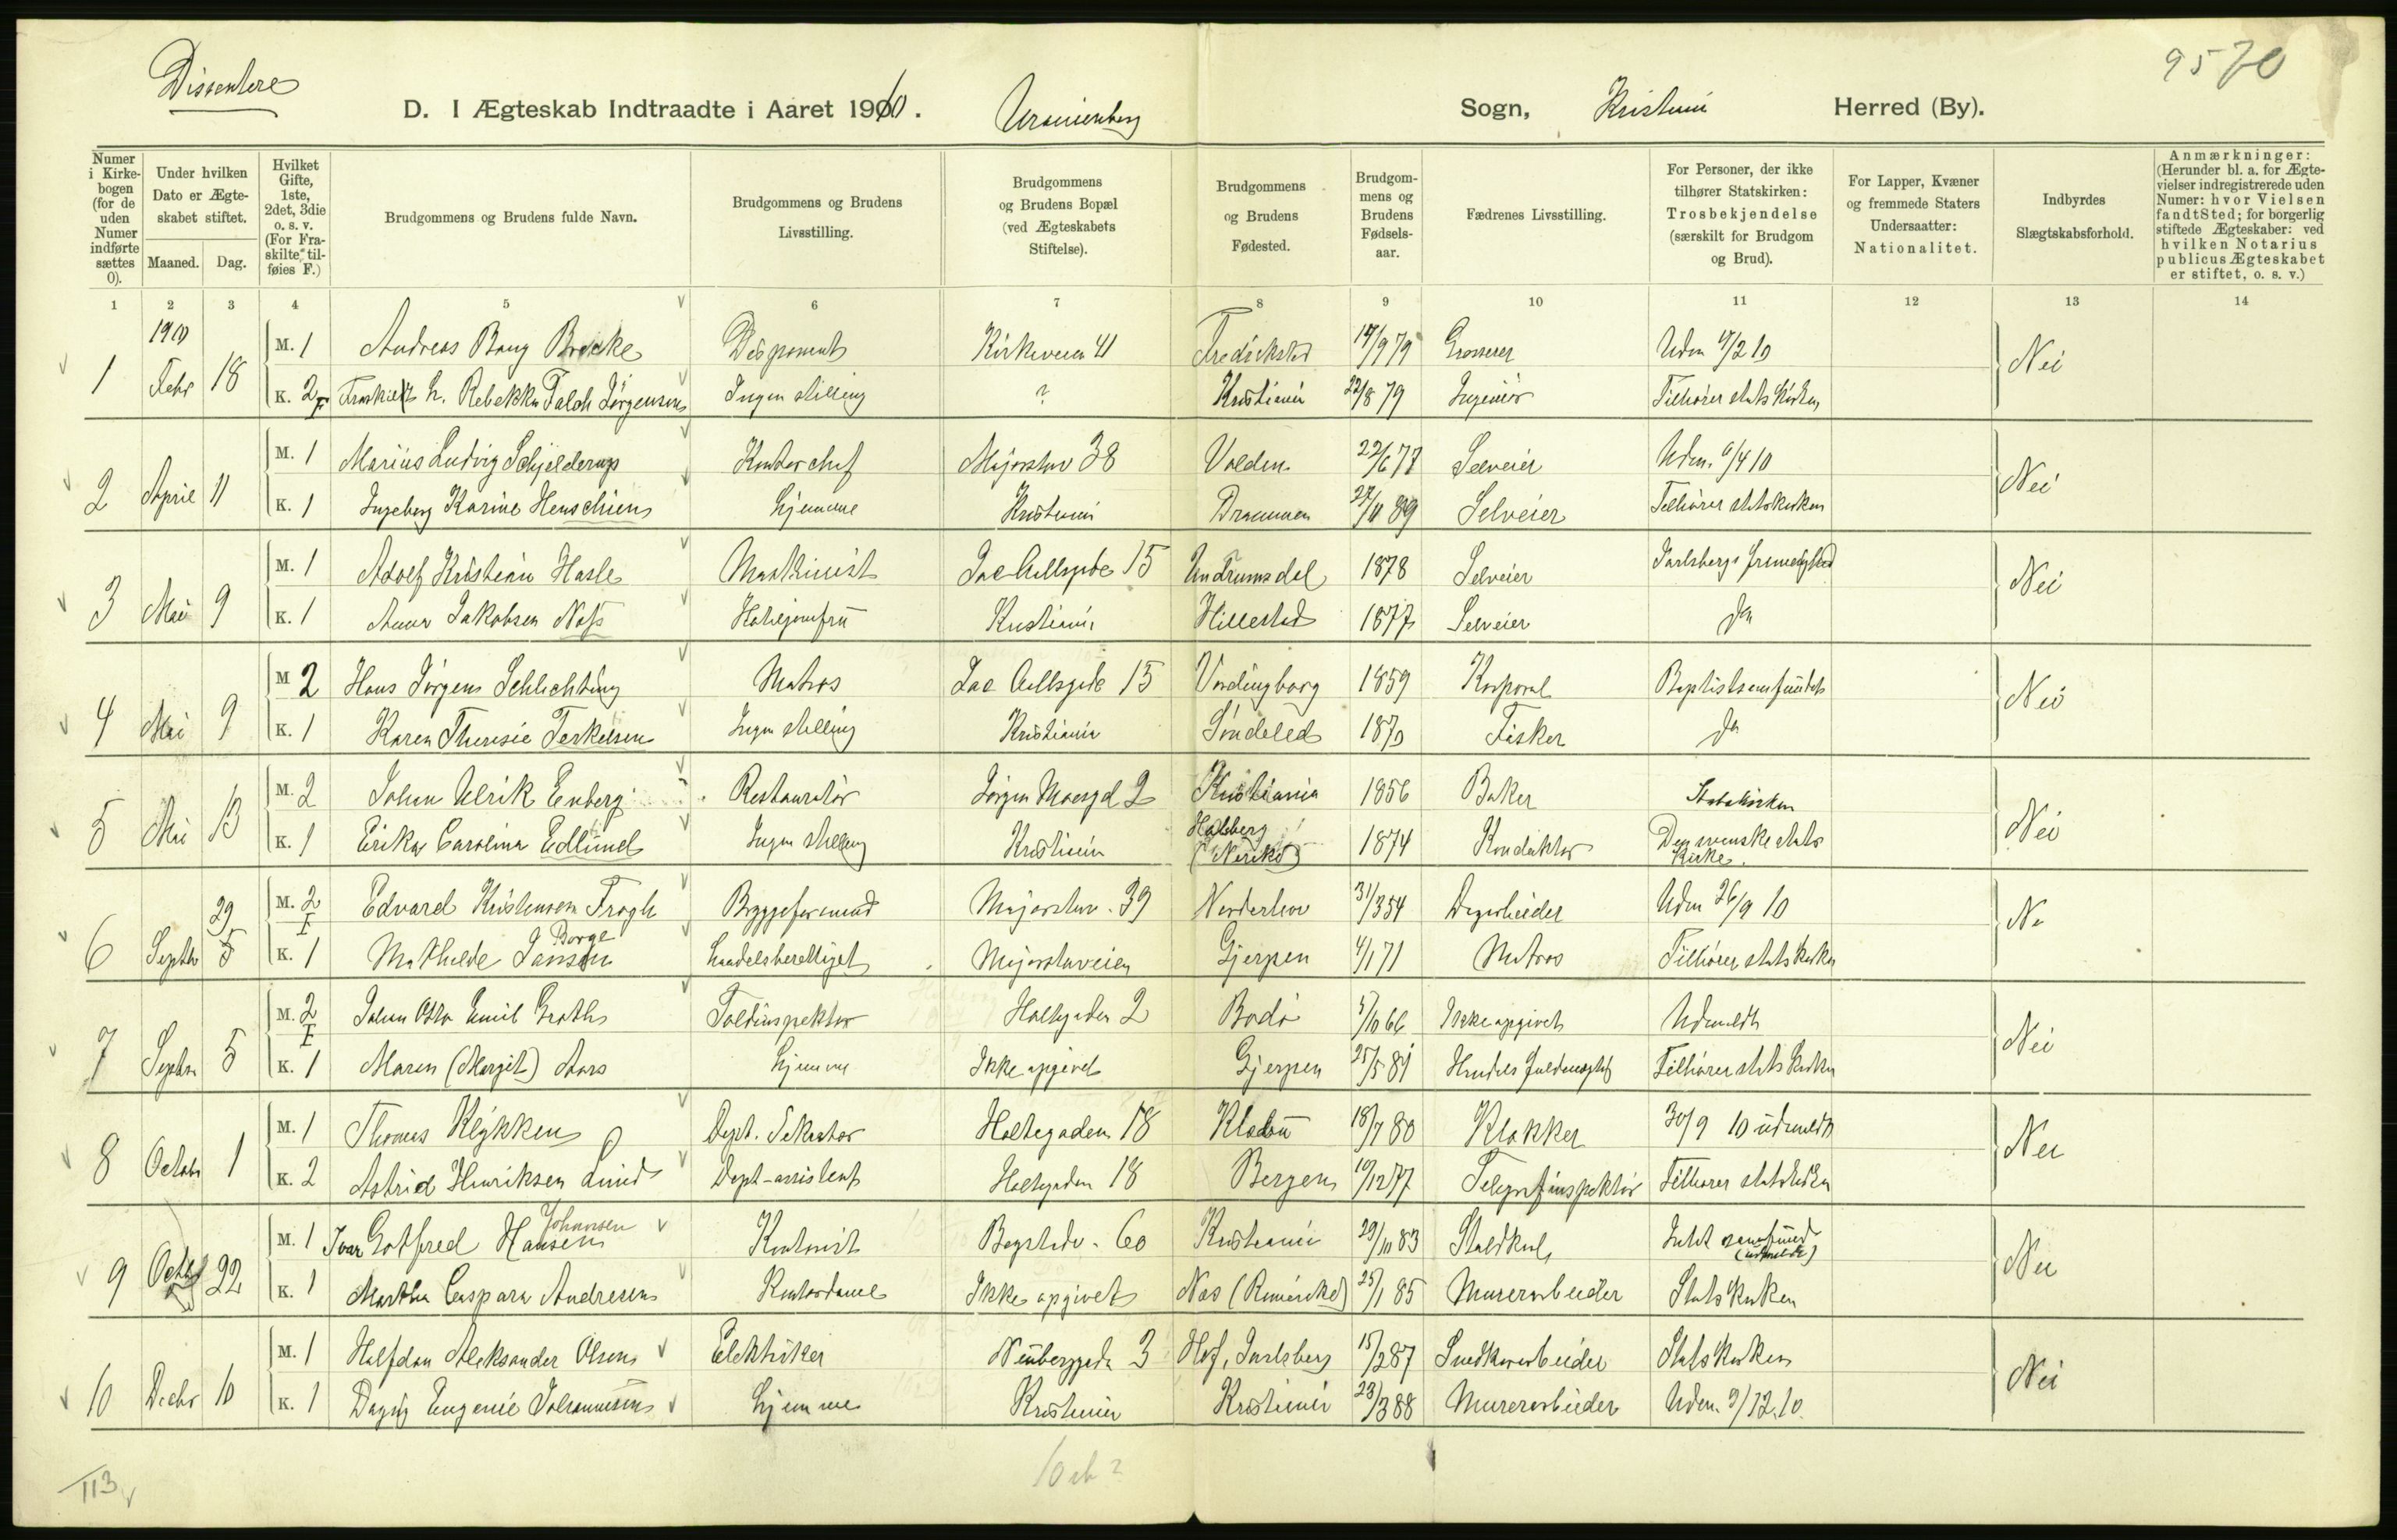 Dissentere
9570
D. I Ægteskab Indtraadte i Aaret 1910. Uranienborg Sogn, Kristiania Herred (By).
Numer i Kirkebogen (for de uden Numer indførte sættes 0).
Under hvilken Dato er Ægteskabet stiftet.
Maaned. Dag.
Hvilket Gifte, 1ste, 2det, 3die o. s. v. (For Fraskilte tilføies F.)
Brudgommens og Brudens fulde Navn.
Brudgommens og Brudens Livsstilling.
Brudgommens og Brudens Bopæl (ved Ægteskabets Stiftelse).
Brudgommens og Brudens Fødested.
Brudgommens og Brudens Fødselsaar.
Fædrenes Livsstilling.
For Personer, der ikke tilhører Statskirken: Trosbekjendelse (særskilt for Brudgom og Brud).
For Lapper, Kvæner og fremmede Staters Undersaatter: Nationalitet.
Indbyrdes Slægtskabsforhold.
Anmærkninger: (Herunder bl. a. for Ægtevielser indregistrerede uden Numer: hvor Vielsen fandt Sted; for borgerlig stiftede Ægteskaber: ved hvilken Notarius publicus Ægteskabet er stiftet, o. s. v.)
1 2 3 4 5 6 7 8 9 10 11 12 13 14
1910
M. 1 Andreas Bang Disponent Kirkeveien 41 Fredrikstad 17/9 79 Grosserer Udm 10
1 Febr 18 Nei
K. 2 F Rebekka Falch Jørgensen Ingen stilling ? Kristiania 22/8 79 Ingeniør Tilhører statskirken
M. 1 Marius Ludvig Schjelderup Kontorchef Majorstuv 38 Volden 22/6 78 Selveier Udm. 6/4 10
2 April 11 Nei
K. 1 Ingeborg Karine Henschien hjemme Kristiania Drammen 27/11 89 Selveier Tilhører statskirken
M. 1 Adolf Kristian Hasle Maskinist Jac Aallsgade 15 Undrumsdal 1878 Selveier Jarlsbergs frimenighed
3 Mai 9 Nei
K. 1 Anna Jakobsen Næss Hoteljomfru Kristiania Hillestad 1877 Selveier Do
M 2 Hans Jørgen Schlichting Matros Jac Aallsgade 15 Vordingborg 1859 Korporal Baptistsamfundet
4 Mai 9 Nei
K. 1 Karen Theresie Terkelsen Ingen stilling Kristiania Søndeled 1870 Fisker Do
M. 2 Johan Ulrik Enberg Restauratør Jørgen Moesgd 2 Kristiania 1856 Baker Statskirken
5 Mai 13 Nei
K. 1 Erika Carolina Edlund Ingen stilling Kristiania Halsberg (Nerike) 1874 Konduktør Den svenske stats kirke.
M. 2 F Edvard Kristensen Trogh Bryggeformand Majorstuv. 39 Norderhov 31/3 54 Dagarbeider Udm 26/9 10
6 Septbr 29 5
K. 1 Mathilde Jansen Borge handelsberettiget Majorstuveien Gjerpen 4/1 71 Matros Tilhører statskirken
M. 2 F Johan Otto Emil Groth Toldinspektør Holtegaden 2 Bodø 5/10 66 Ikke opgivet Udmeldt
7 Septbr 5 Nei
K. 1 Maren (Margit) Aars hjemme Ikke opgivet Gjerpen 25/5 81 Handels fuldmægtig Tilhører statskirken
M. 1 Thomas Klykken Dept. Sekretær Holtegaden 18 18/7 80 Klokker 30/9 10 udmeldt
8 Octobr 1 Nei
K. 2 Astrid Henriksen Lund Dept-assistent Holtegaden 18 Bergen 10/12 77 Telegrafinspektør Tilhører statskirken
M. 1 Ivar Gotfred Hansen Johansen Kontorist Bogstadv. 60 Kristiania 29/10 83 Staldkarl (udmeldt)
9 Octbr 22 Nei
K. 1 Martha Caspara Andresen Kontordame Ikke opgivet Nes (Romerike) 25/1 85 Murerarbeider Statskirken
M. 1 Halfdan Aleksander Olsen Elektriker Neuberggada 3 Hof, Jarlsberg 15/2 87 Snedkerarbeider Statskirken
10 Decbr 10 Nei
K. 1 Dagny Eugenie Johannesen hjemme Kristiania Kristiania 23/3 88 Murerarbeider Udm. 9/12.10.
113